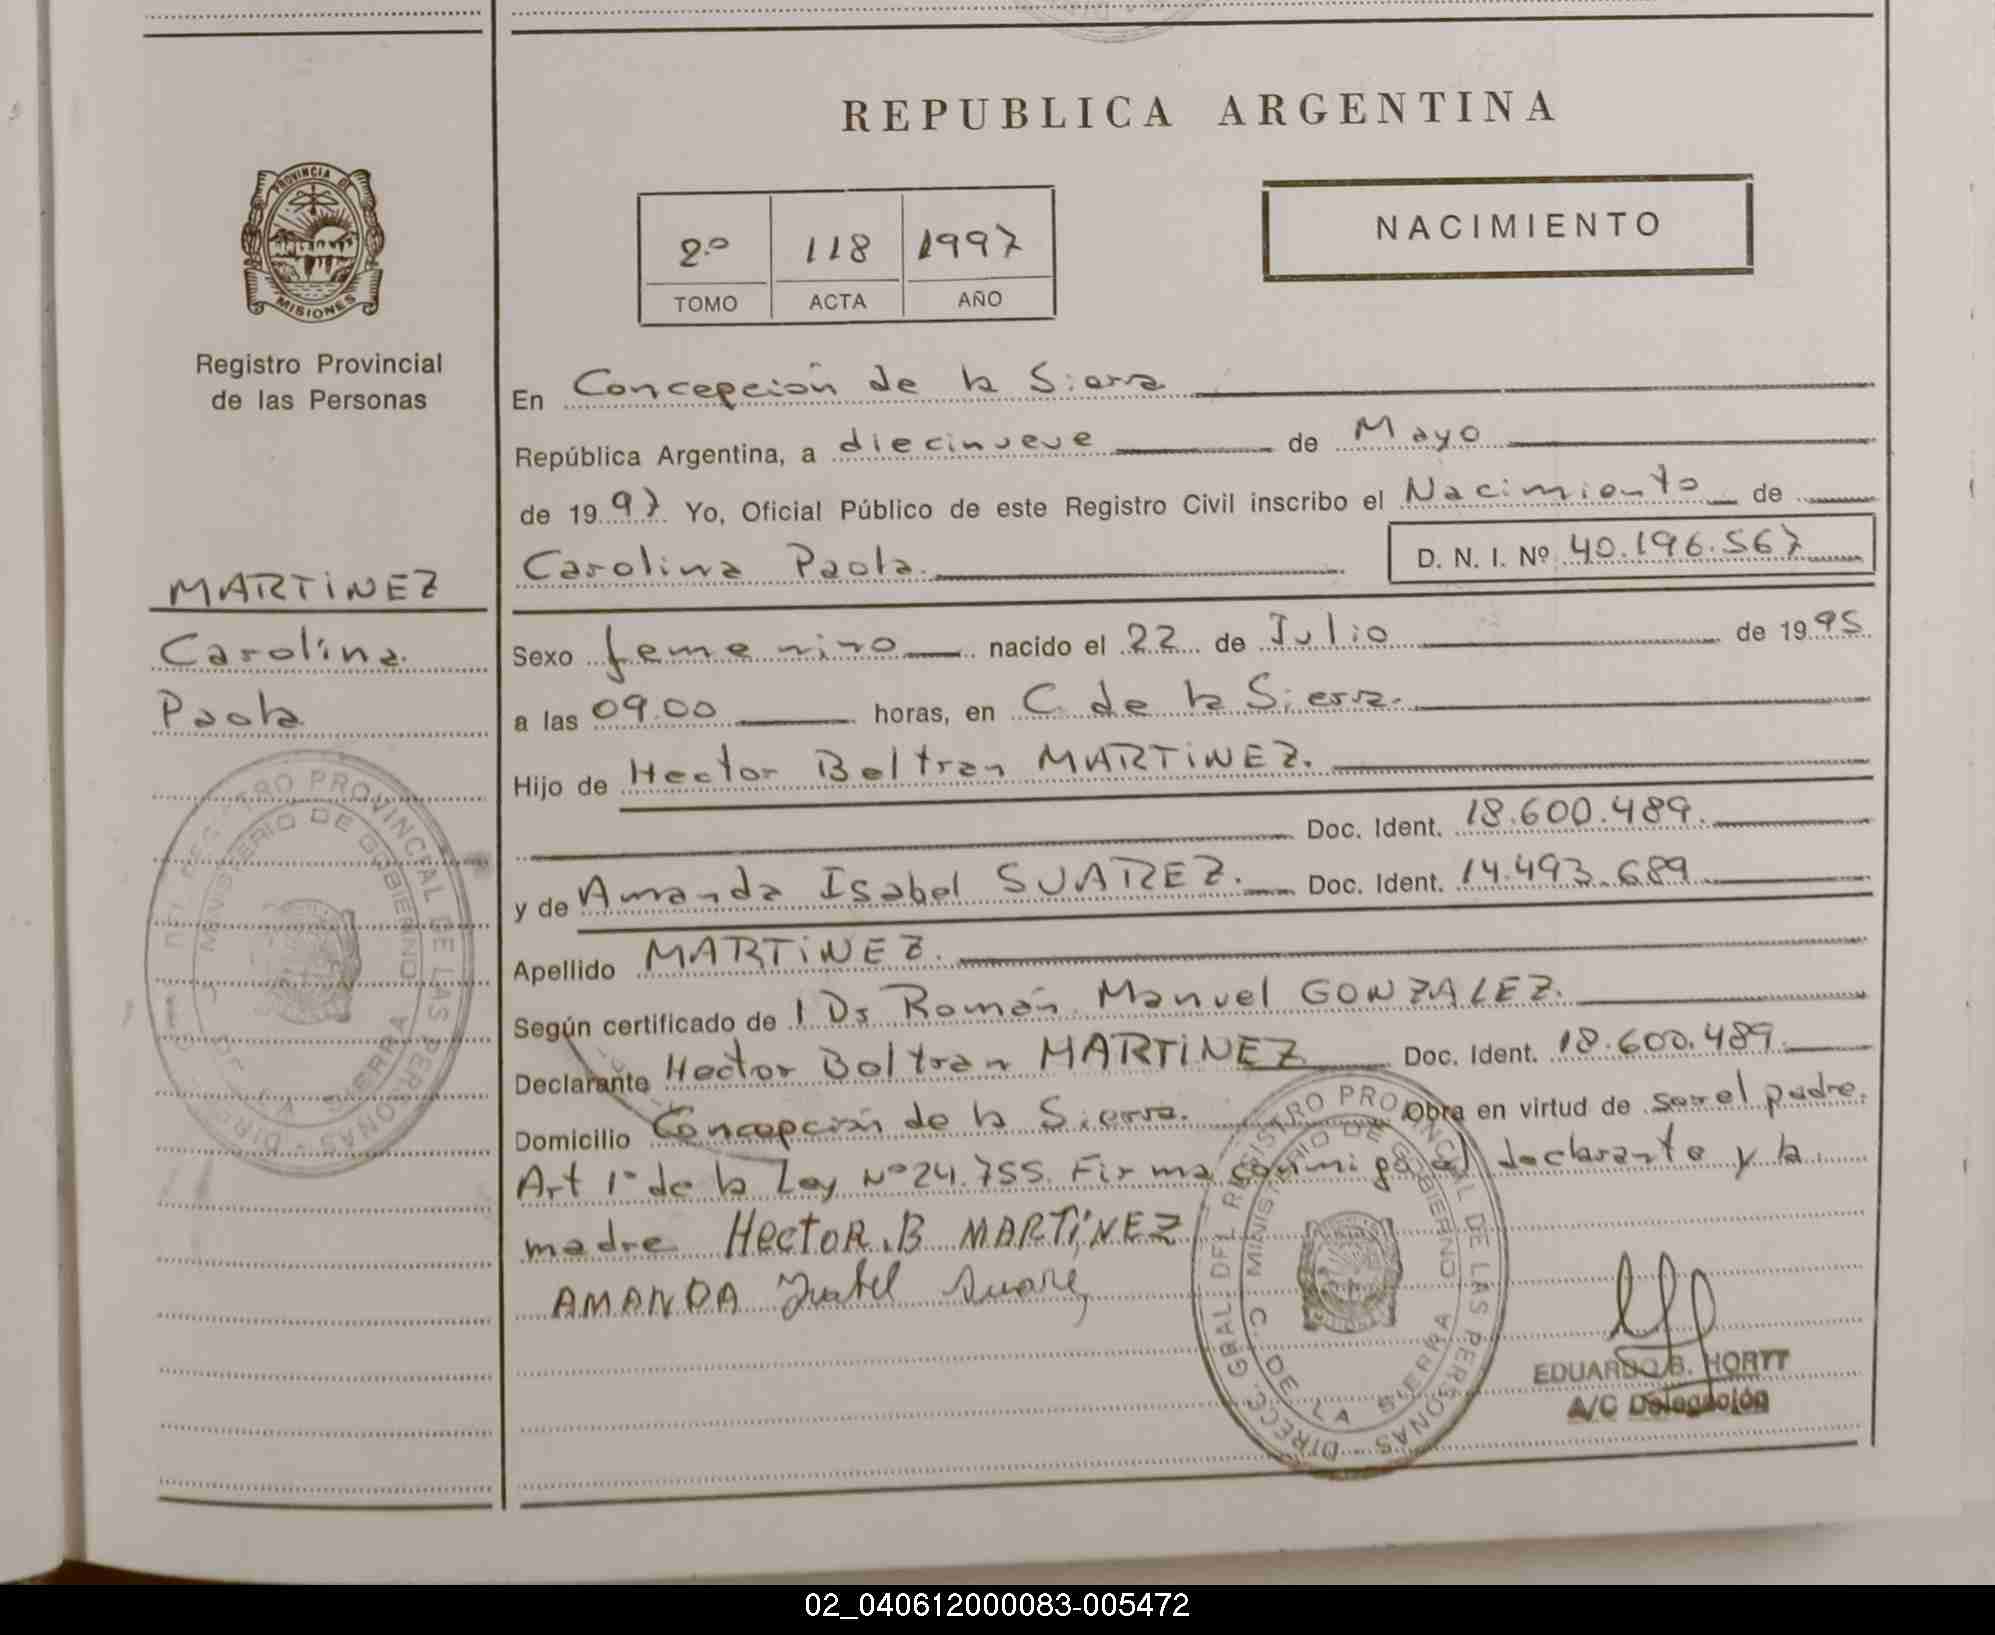 REPUBLICA ARGENTINA
PROVINCIA DE
MISIONES
Registro Provincial
de las Personas
2º 118 1997
TOMO ACTA AÑO
NACIMIENTO
En Concepción de la Sierra
República Argentina, a diecinueve de Mayo
de 1997 Yo, Oficial Público de este Registro Civil inscribo el Nacimiento de
Carolina Paola. D. N. I. Nº 40.196.567
MARTINEZ
Carolina
Paola
Sexo femenino nacido el 22 de Julio de 1995
a las 09.00 horas, en C. de la Sierra.
Hijo de Hector Beltran MARTINEZ.
Doc. Ident. 18.600.489.
y de Amanda Isabel SUAREZ. Doc. Ident. 14.493.689
Apellido MARTINEZ.
Según certificado de Dr Román Manuel GONZALEZ.
Declarante Hector Beltran MARTINEZ Doc. Ident. 18.600.489.
Domicilio Concepción de la Sierra. Obra en virtud de ser el padre.
Art 1º de la Ley Nº 24.755. Firma conmigo el declarante y la
madre HectoR.B MARTINEZ
AMANDA Isabel Suarez
DIRECC. GRAL. DEL REGISTRO PROVINCIAL DE LAS PERSONAS
MINISTERIO DE GOBIERNO
C. DE LA SIERRA
DIRECC. GRAL. DEL REGISTRO PROVINCIAL DE LAS PERSONAS
MINISTERIO DE GOBIERNO
C. DE LA SIERRA
EDUARDO B. HORTT
A/C Delegación
02_040612000083-005472